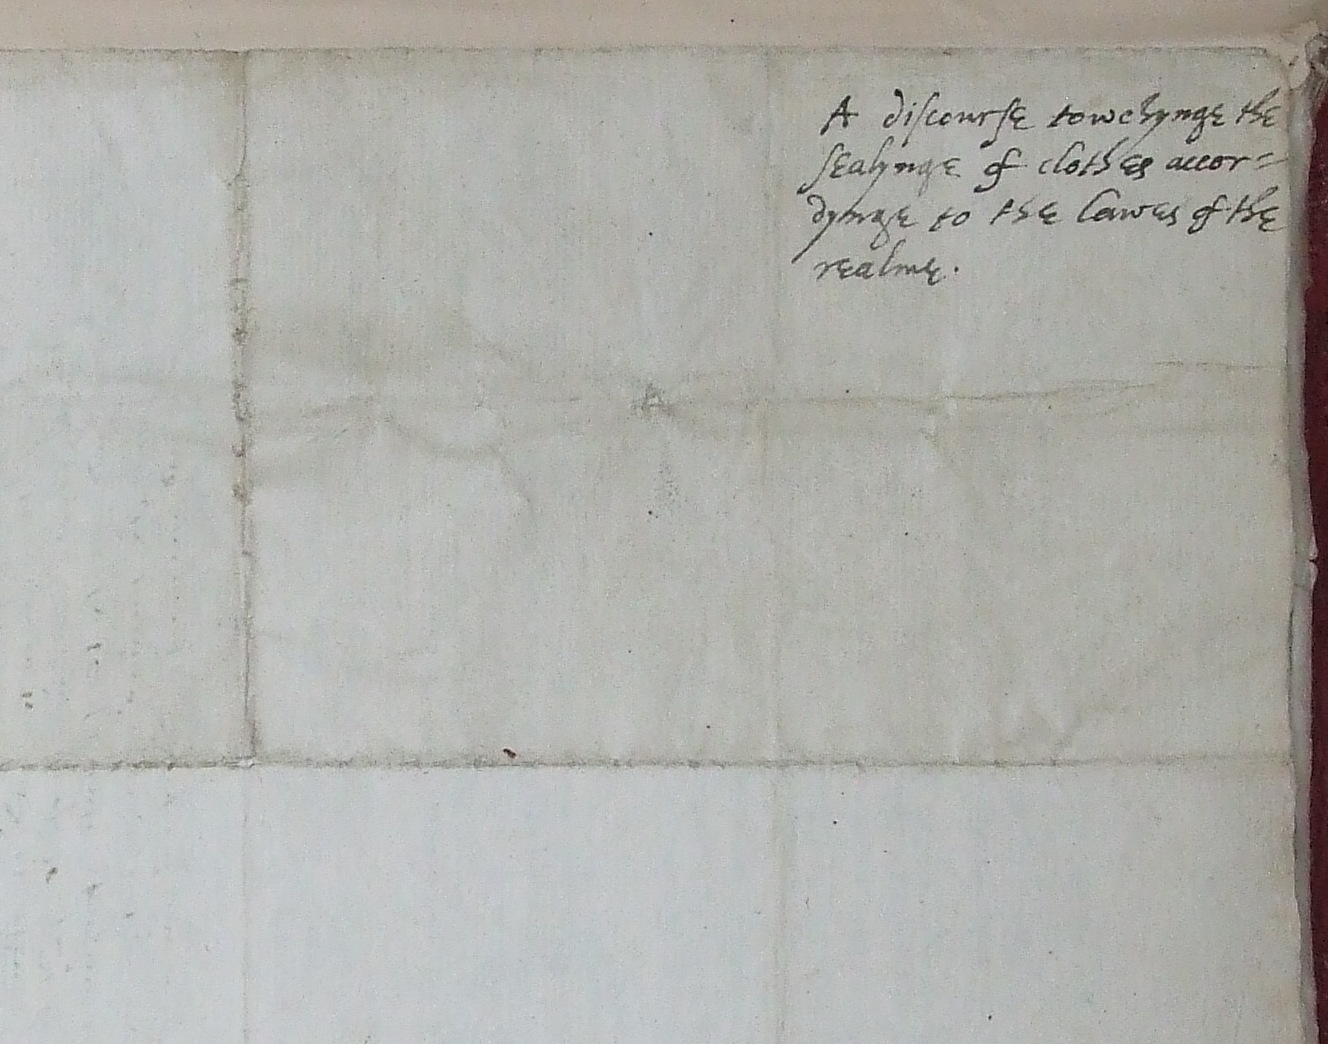 A discourse towchynge the
sealynge of clothes accor=
dynge to the lawes of the
realme.